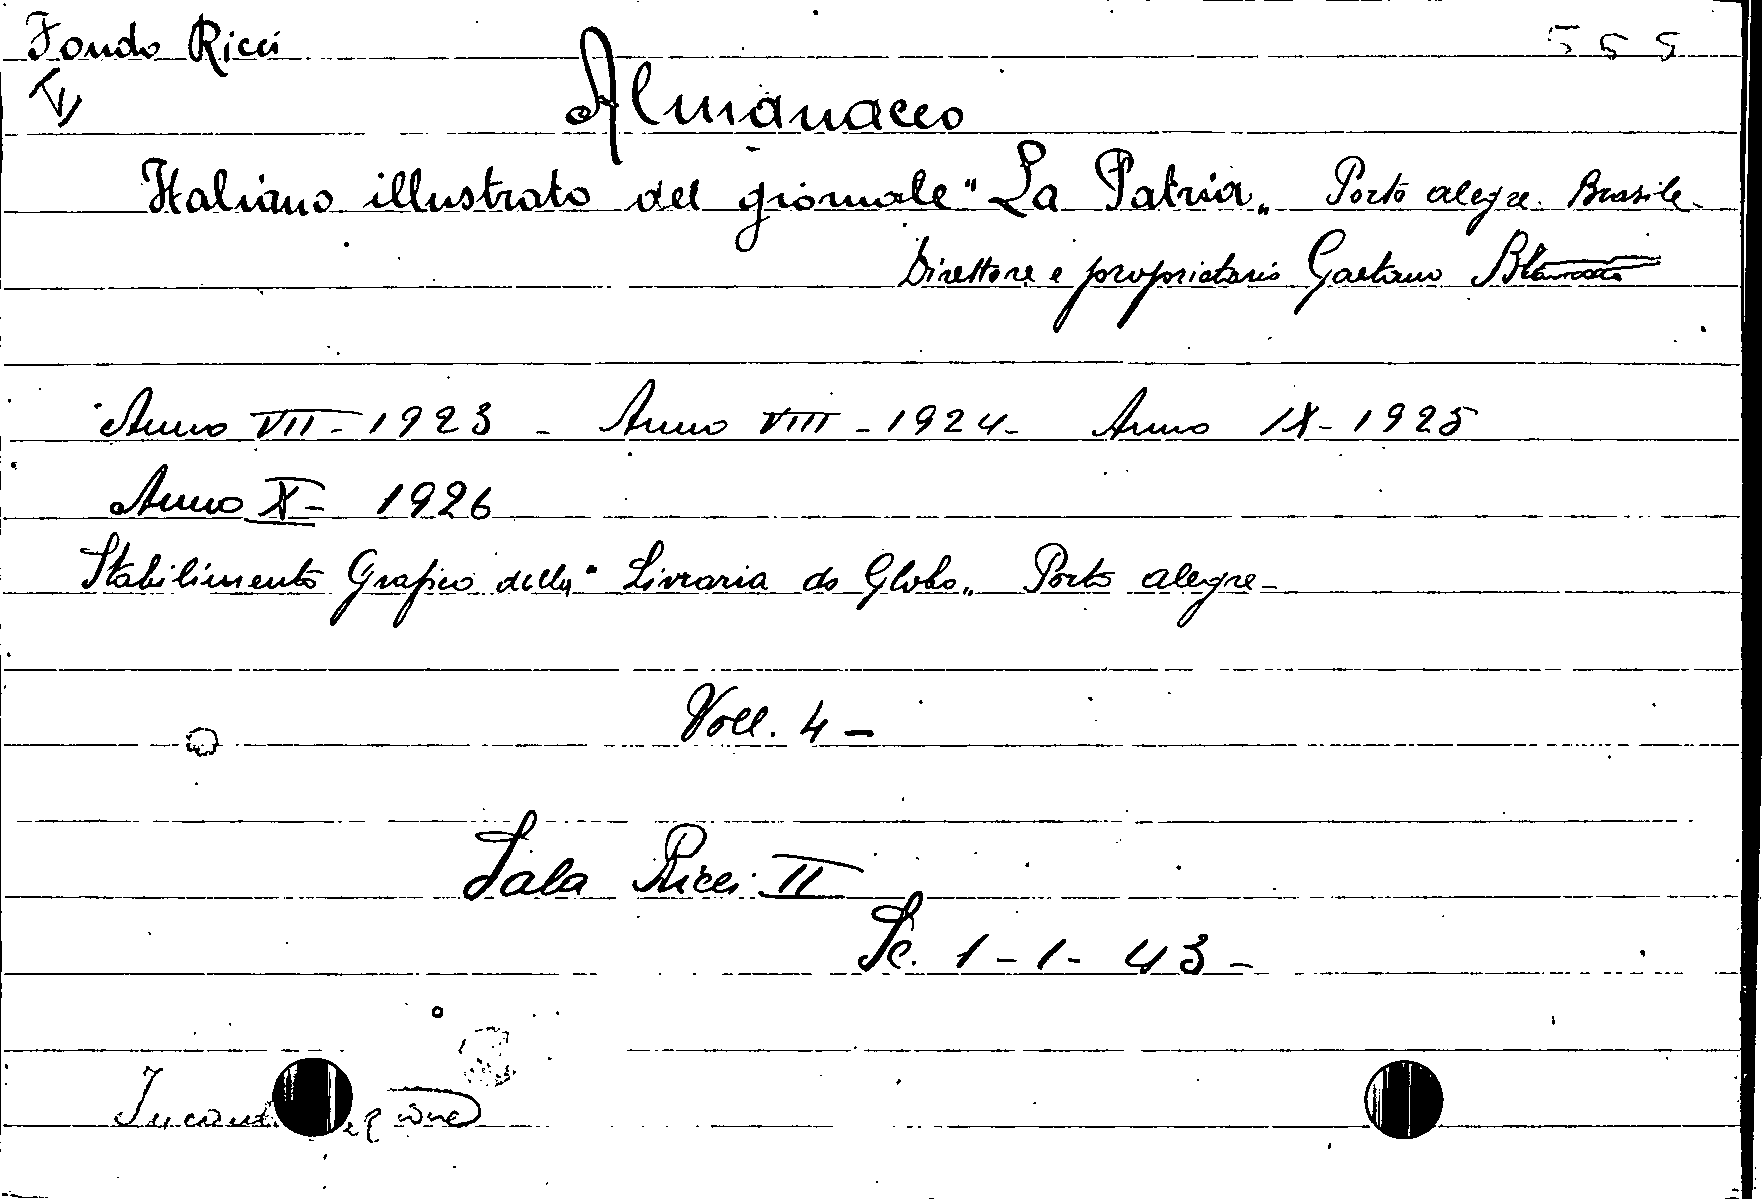 Fondo Ricci
555
Almanacco
Italiano illustrato del giornale "La Patria„ Porto Alegre. Brasile-
Direttore e proprietario Gaetano
Anno VII - 1923 - Anno VIII - 1924 - Anno IX - 1925
Anno X - 1926
Stabilimento Grafico della "Livraria do Globo„ Porto Alegre -
Voll. 4 -
Sala Ricci II
Sc. 1 - 1 - 43 -